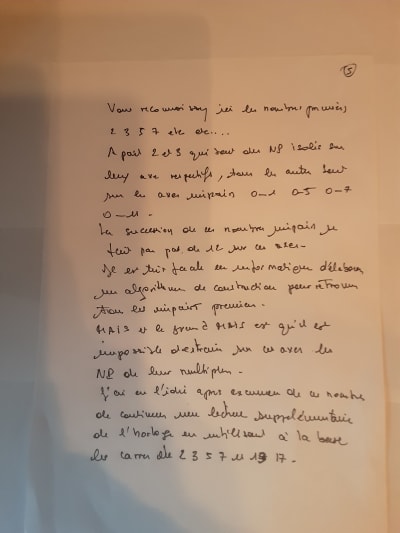 5
Vous reconnaissez ici les nombres premiers,
2 3 5 7 etc etc....
A part 2 et 3 qui sont des NP isolés sur
leurs axes respectifs, tous les autres sont
sur les axes impairs 0-1 0-5 0-7
0-11.
La succession de ces nombres impairs se
fait par pas de 12 sur ces axes.
Il est très facile en informatique d'élaborer
un algorithme de construction pour retrouver
tous les impairs premiers.
MAIS et le grand MAIS est qu'il est
impossible d'extraire sur ces axes les
NP de leur multiples.
J'ai eu l'idée après examen de ces nombres
de continuer une lecture supplémentaire
de l'horloge en utilisant à la base
les carrés de 2 3 5 7 11 13 17.